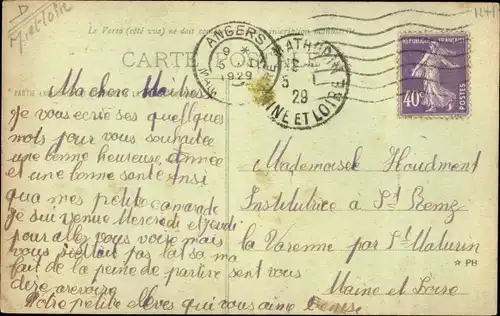 D
M et Loir
1141
Le Verso (côté vue) ne doit
CARTE POSTALE
ANGERS
MAINE ET LOIRE
5
1929
MATHURIN
5 - 1
29
MAINE ET LOIRE
RÉPUBLIQUE FRANÇAISE
40c
POSTES
Ma chere Maitresse
je vous ecrie ses quelques
mots pour vous souhaitee
une bonne heureuse année
et une bonne sante insi
qua mes petite camarade
je sui venue Mescredi et jeudi
pour allez vous voire mais
vous sietait pas lat sa ma
fait de la peine de partire sent vous
dire arevoire
Votre petite elèves qui vous aime Denise
Mademoiselle Houdment
Institutrice a St Remy
la Varenne par St Maturin
★ PB
Maine et Loire